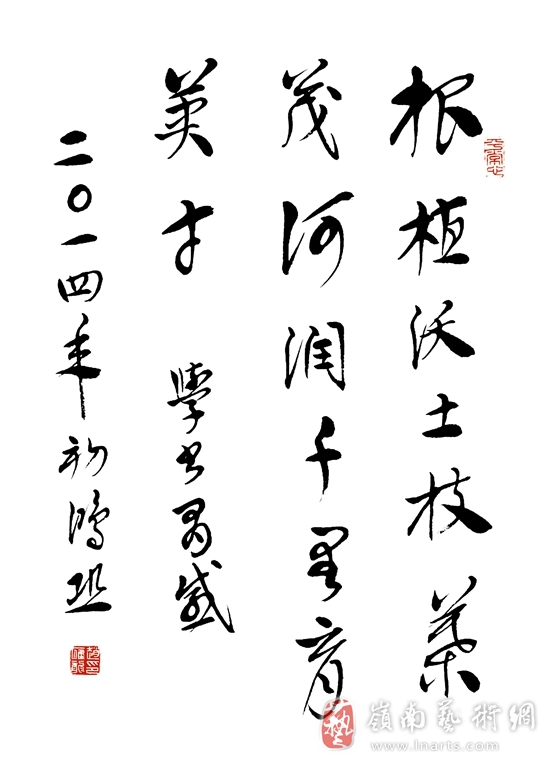 平常心
根植沃土枝葉
茂河润千里育
英才
學书感
二〇一四年初鴻
嶺南藝術網
www.lnarts.com